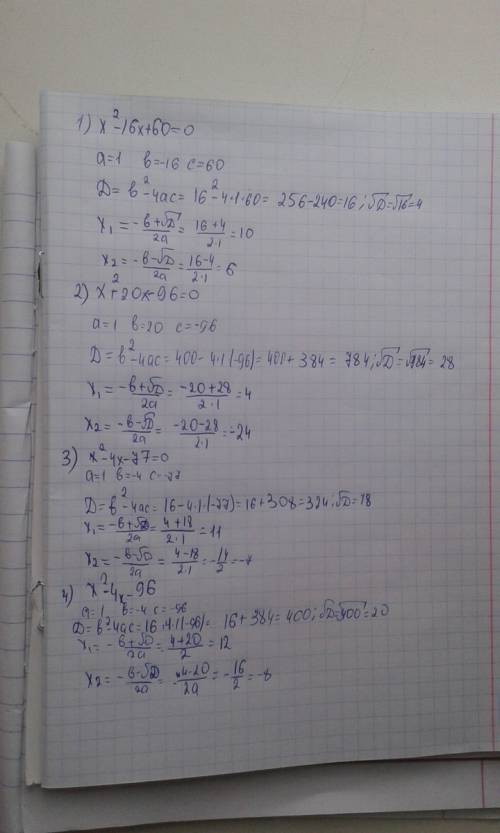 1) x²-16x+60=0
a=1 в=-16 c=60
D=в²-4ac=16²-4·1·60=256-240=16; √D=√16=4
x₁=(-в+√D)/2a=(16+4)/2·1=10
x₂=(-в-√D)/2a=(16-4)/2·1=6
2) x²+20x-96=0
a=1 в=20 c=-96
D=в²-4ac=400-4·1·(-96)=400+384=784; √D=√784=28
x₁=(-в+√D)/2a=(-20+28)/2·1=4
x₂=(-в-√D)/2a=(-20-28)/2·1=-24
3) x²-4x-77=0
a=1 в=-4 c=-77
D=в²-4ac=16-4·1·(-77)=16+308=324; √D=18
x₁=(-в+√D)/2a=(4+18)/2·1=11
x₂=(-в-√D)/2a=(4-18)/2·1=-14/2=-7
4) x²-4x-96
a=1 в=-4 c=-96
D=в²-4ac=16·4·1(-96)=16+384=400; √D=√400=20
x₁=(-в+√D)/2a=(4+20)/2=12
x₂=(-в-√D)/2a=(4-20)/2a=-16/2=-8